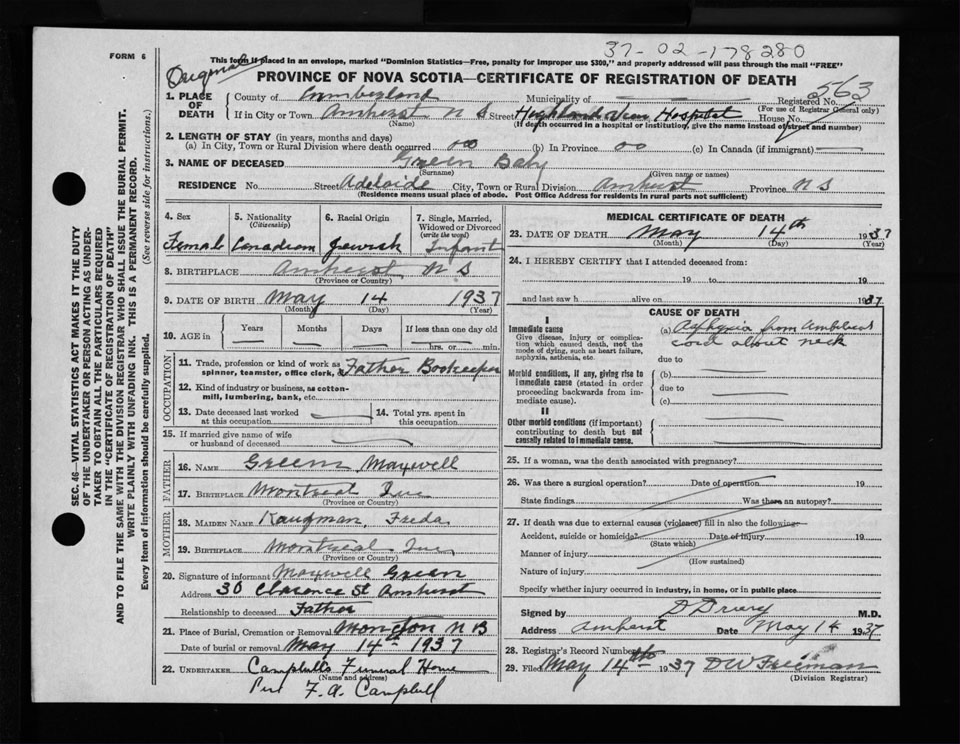 37-02-178280
FORM 6
Original
This form if placed in an envelope, marked "Dominion Statistics—Free, penalty for improper use $300," and properly addressed will pass through the mail "FREE"
PROVINCE OF NOVA SCOTIA—CERTIFICATE OF REGISTRATION OF DEATH
563
1. PLACE OF DEATH County of Cumberland Municipality of Registered No.
(For use of Registrar General only)
If in City or Town Amherst N S Street Highland View Hospital House No.
(Name) (If death occurred in a hospital or institution, give the name instead of street and number)
2. LENGTH OF STAY (in years, months and days)
(a) In City, Town or Rural Division where death occurred (b) In Province (c) In Canada (if immigrant)
3. NAME OF DECEASED Green Baby
(Surname) (Given name or names)
RESIDENCE No. Street Adelaide City, Town or Rural Division Amherst Province N S
(Residence means usual place of abode. Post Office Address for residents in rural parts not sufficient)
4. Sex 5. Nationality (Citizenship) 6. Racial Origin 7. Single, Married, Widowed or Divorced (write the word)
Female Canadian Jewish Infant
8. BIRTHPLACE Amherst N S
(Province or Country)
9. DATE OF BIRTH May 14 1937
(Month) (Day) (Year)
10. AGE in Years Months Days If less than one day old
hrs. or min.
OCCUPATION
11. Trade, profession or kind of work as spinner, teamster, office clerk, Father Bookeeper
12. Kind of industry or business, as cotton-mill, lumbering, bank, etc.
13. Date deceased last worked at this occupation 14. Total yrs. spent in this occupation
15. If married give name of wife or husband of deceased
FATHER
16. NAME Green Maxwell
17. BIRTHPLACE Montreal Que
(Province or Country)
MOTHER
18. MAIDEN NAME Kaufman, Freda
19. BIRTHPLACE Montreal Que
(Province or Country)
20. Signature of informant Maxwell Green
Address 30 Clarence St Amherst
Relationship to deceased Father
21. Place of Burial, Cremation or Removal Moncton N B
Date of burial or removal May 14th 1937
22. UNDERTAKER Campbells Funeral Home
(Name and address)
Per F. A. Campbell
MEDICAL CERTIFICATE OF DEATH
23. DATE OF DEATH May 14th 1937
(Month) (Day) (Year)
24. I HEREBY CERTIFY that I attended deceased from:
19 to 19
and last saw h alive on 1937
CAUSE OF DEATH
I
Immediate cause
Give disease, injury or complication which caused death, not the mode of dying, such as heart failure, asphyxia, asthenia, etc.
(a) Asphyxia from
cord about neck
due to
Morbid conditions, if any, giving rise to immediate cause (stated in order proceeding backwards from immediate cause).
(b)
due to
(c)
II
Other morbid conditions (if important) contributing to death but not causally related to immediate cause.
25. If a woman, was the death associated with pregnancy?
26. Was there a surgical operation? Date of operation 19
State findings Was there an autopsy?
27. If death was due to external causes (violence) fill in also the following:
Accident, suicide or homicide? Date of injury 19
(State which)
Manner of injury
(How sustained)
Nature of injury
Specify whether injury occurred in industry, in home, or in public place
Signed by D Drury M.D.
Address Amherst Date May 14 1937
28. Registrar's Record Number
29. Filed May 14th 1937 D W Freeman
(Division Registrar)
SEC. 46—VITAL STATISTICS ACT MAKES IT THE DUTY
OF THE UNDERTAKER OR PERSON ACTING AS UNDER-
TAKER TO OBTAIN ALL THE PARTICULARS REQUIRED
IN THE "CERTIFICATE OF REGISTRATION OF DEATH"
AND TO FILE THE SAME WITH THE DIVISION REGISTRAR WHO SHALL ISSUE THE BURIAL PERMIT.
WRITE PLAINLY WITH UNFADING INK. THIS IS A PERMANENT RECORD.
Every item of information should be carefully supplied. (See reverse side for instructions.)